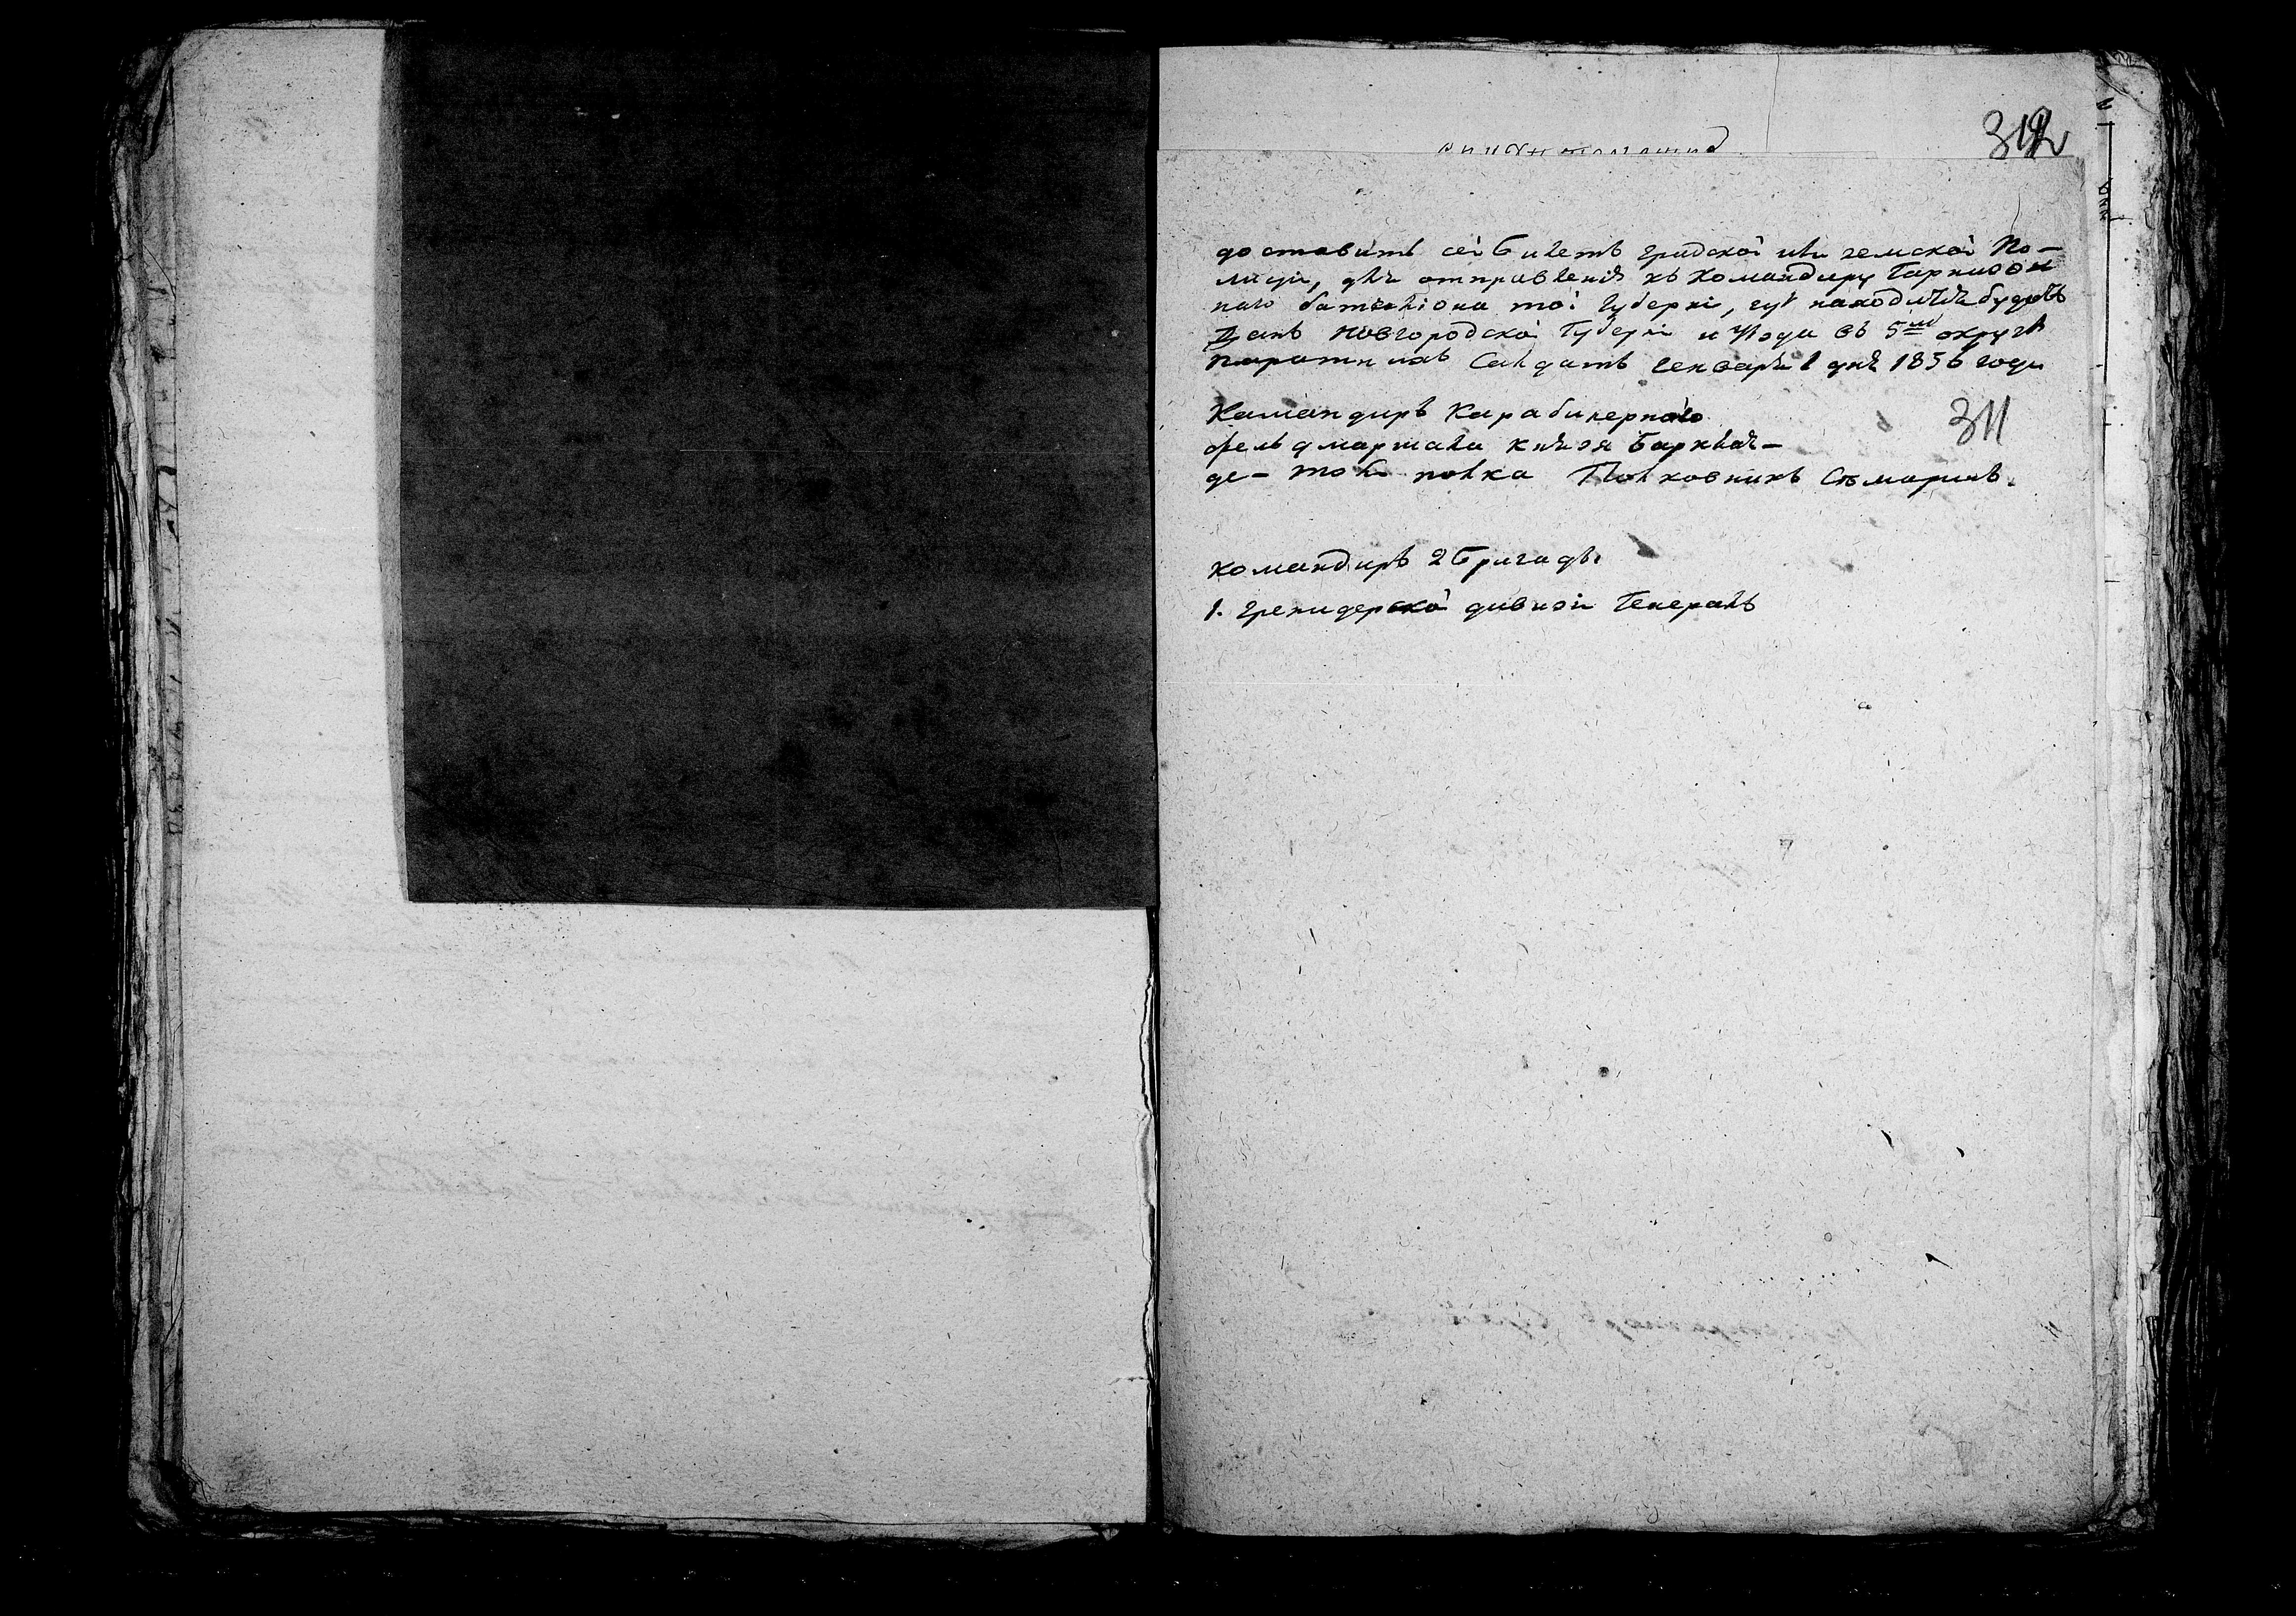 312
доставить сеи билетъ градской или земской По-
лиціи, для отправленія къ командиру Гарнизон
наго баталіона тои Губерніи, гдѣ находится будетъ
Данъ Новгородской Губерніи и Уѣзда въ 5мъ округѣ
Пахатныхъ Салдатъ Генваря 1 дня 1836 года
Камандиръ Карабинернаго
311
фельдмаршала князя Барклай-
де-Толли полка Полковникъ
командиръ 2 бригады
1. гренадерской дивизіи Генералъ